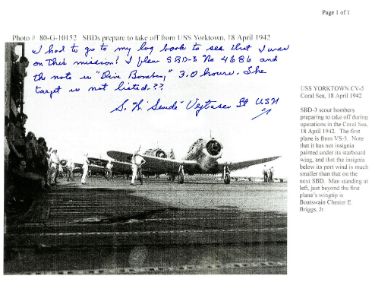 Page 1 of 1
Photo # 80-G-10152 SBDs prepare to take off from USS Yorktown, 18 April 1942
I had to go to my log book to see that I was
on this mission! I flew SBD-3 No 4686 and
the note is "Dive Bombing," 3.0 hours. The
target is not listed??
S. W "Sandi" USN
USS YORKTOWN CV-5
Coral Sea, 18 April 1942
SBD-3 scout bombers
preparing to take off during
operations in the Coral Sea,
18 April 1942. The first
plane is from VS-5. Note
that it has no insignia
painted under its starboard
wing, and that the insignia
below its port wing is much
smaller than that on the
next SBD. Man standing at
left, just beyond the first
plane's wingtip is
Boatswain Chester E.
Briggs, Jr.